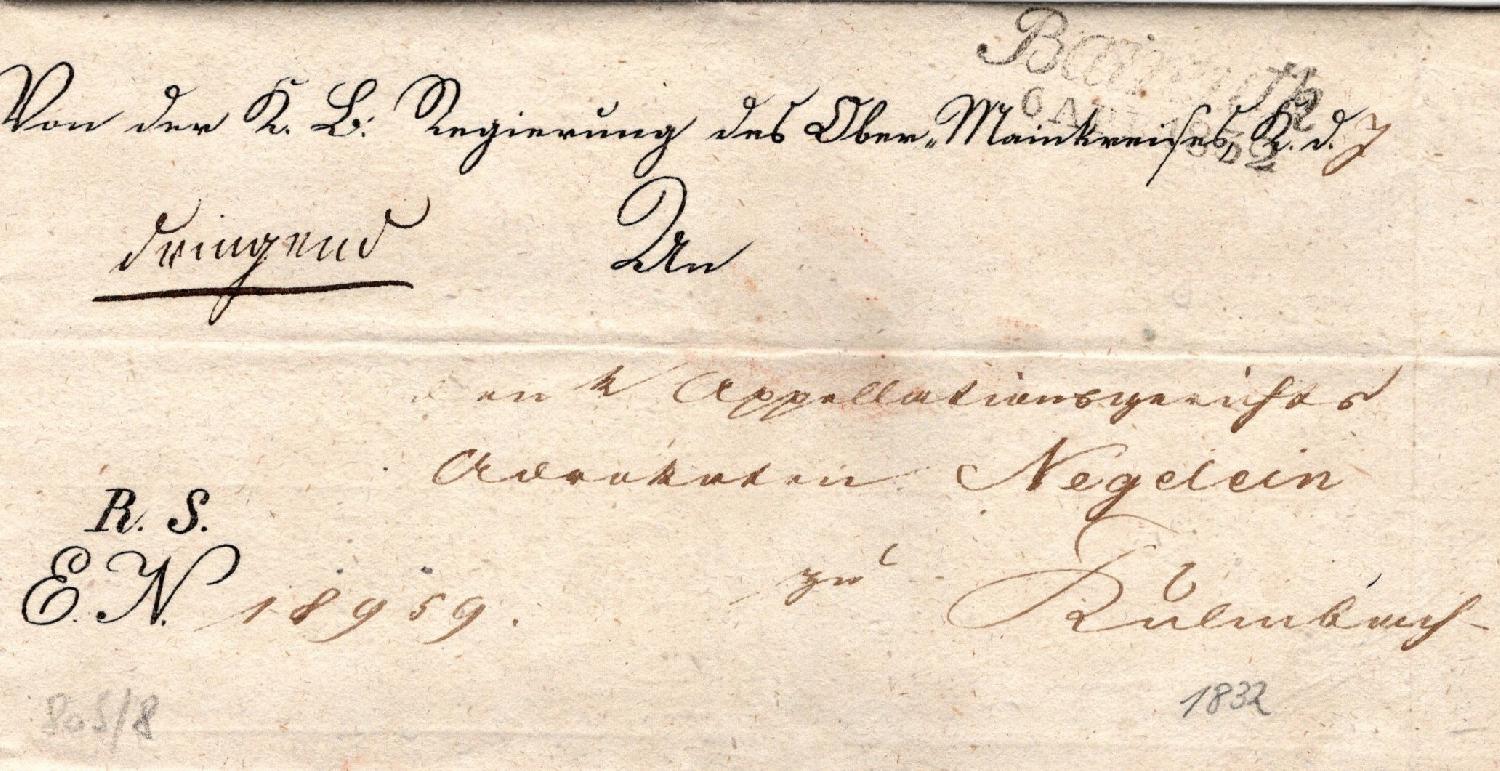 Bairuth
6 APR 1832
Von der K. B. Regierung des Ober-Mainkreises, K. d. J
dringend
An
den k Appellationsgerichts
Advokaten Negelein
R. S.
zu
Kulmbach
E. N. 18959.
1832